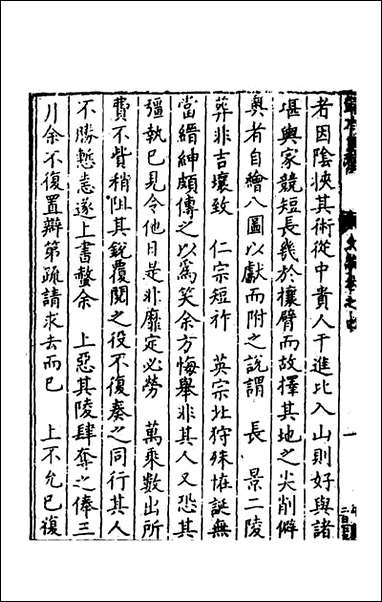 者因陰挾其術從中貴人干進比入山則好與諸
堪輿家競短長幾於攘臂而故擇其地之尖削僻
奧者自繪八圖以獻而附之說謂　長　景二陵
葬非吉壤致　仁宗短祚　英宗北狩殊恠誕無
當縉紳頗傳之以爲笑余方悔舉非其人又恐其
彊執已見令他日是非靡定必勞　萬乘數出所
費不貲稍阻其銳覆閱之役不復奏之同行其人
不勝慙恚遂上書螫余　上惡其陵肆奪之俸三
川余不復置辯第疏請求去而已　上不允已復